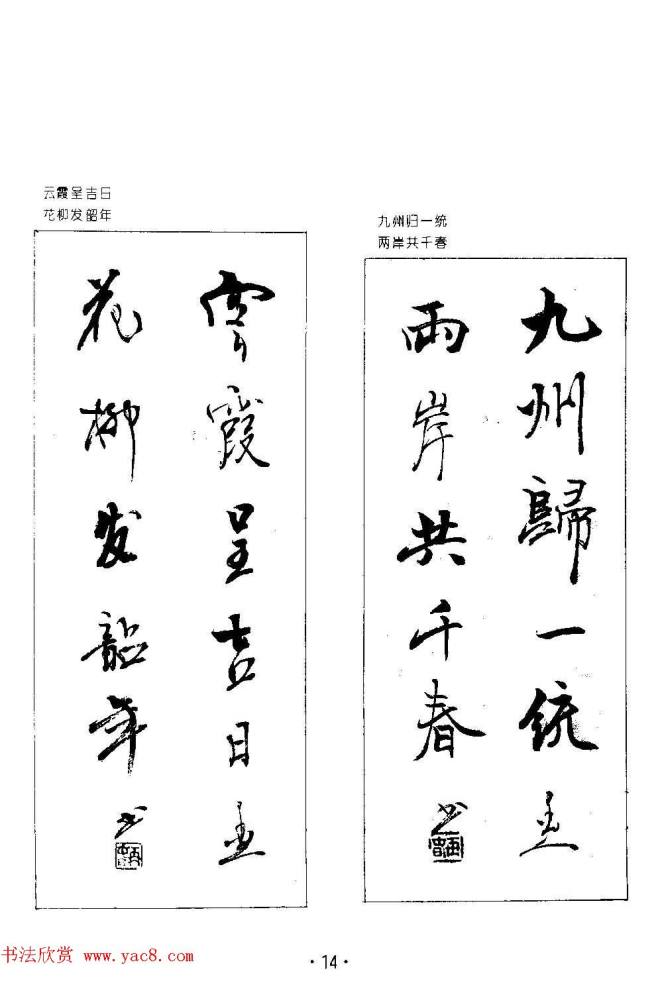 云霞呈吉日
花柳发韶年
九州归一统
两岸共千春
雲霞呈吉日
花柳发韶年
九州歸一統
兩岸共千春
书法欣赏 www.yac8.com
·14·